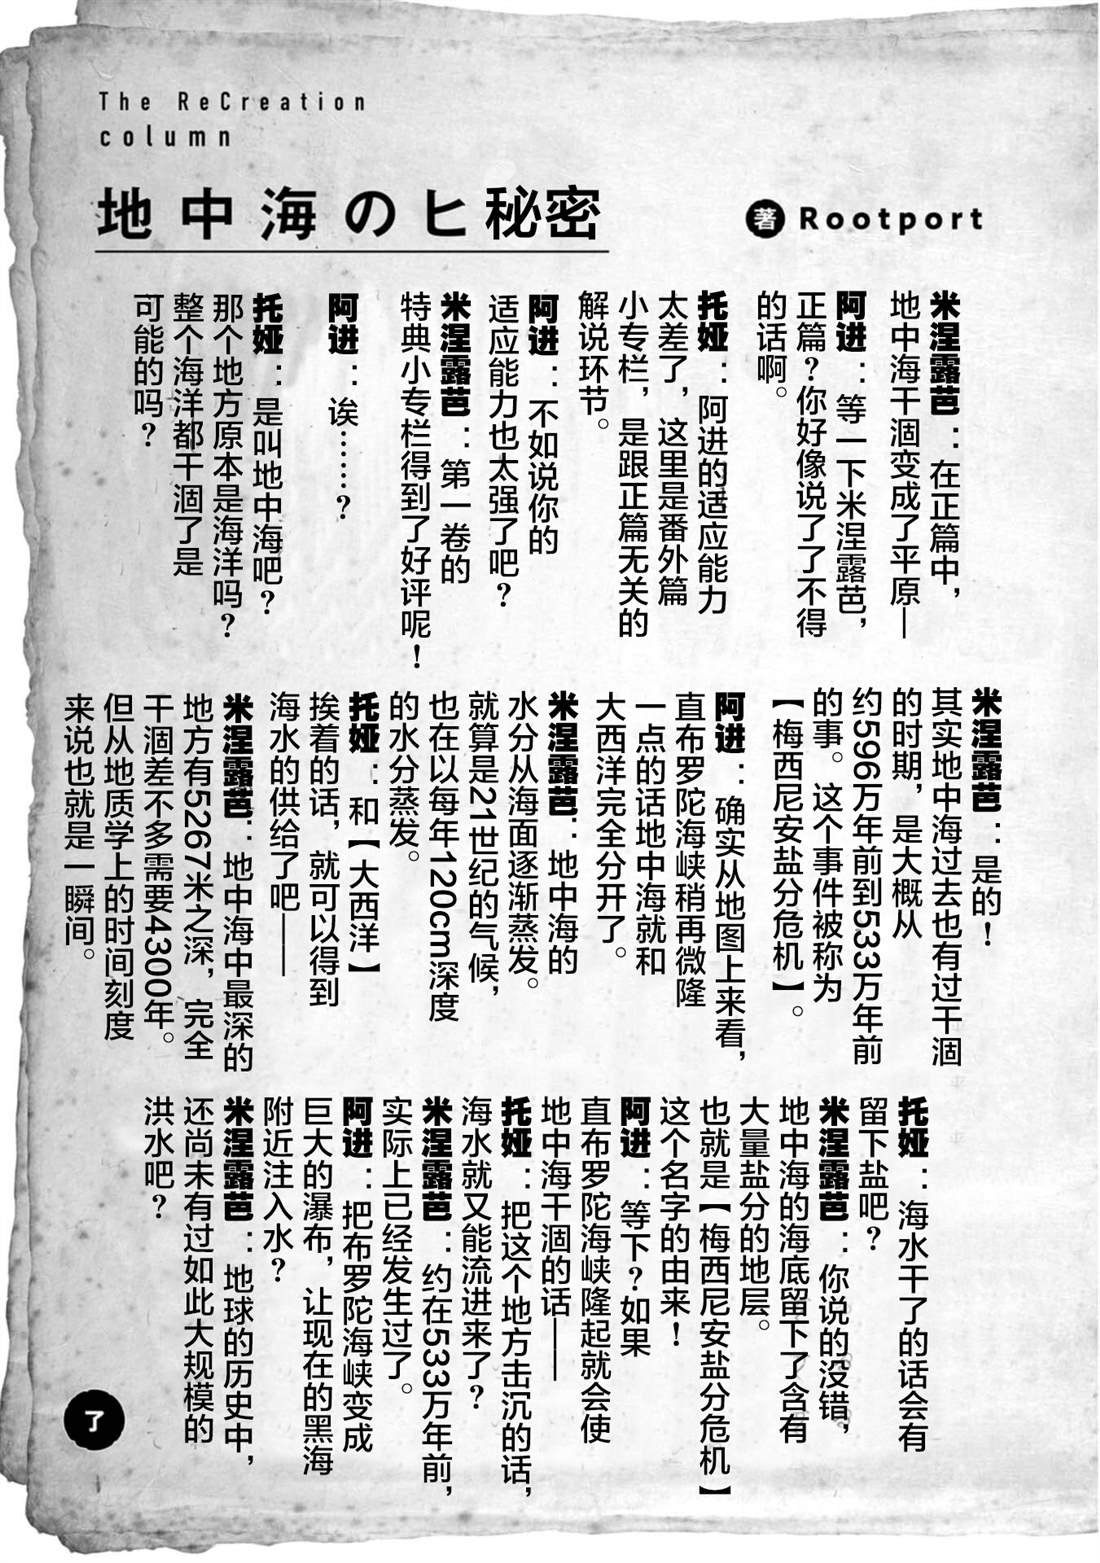 The ReCreation
column
地中海のヒ秘密
著 Rootport
米涅露芭：在正篇中，
地中海干涸变成了平原—
阿进：等一下米涅露芭，
正篇？你好像说了了不得
的话啊。
托娅：阿进的适应能力
太差了，这里是番外篇
小专栏，是跟正篇无关的
解说环节。
阿进：不如说你的
适应能力也太强了吧？
米涅露芭：第一卷的
特典小专栏得到了好评呢！
阿进：诶……？
托娅：是叫地中海吧？
那个地方原本是海洋吗？
整个海洋都干涸了是
可能的吗？
米涅露芭：是的！
其实地中海过去也有过干涸
的时期，是大概从
约596万年前到533万年前
的事。这个事件被称为
【梅西尼安盐分危机】。
阿进：确实从地图上来看，
直布罗陀海峡稍再微隆
一点的话地中海就和
大西洋完全分开了。
米涅露芭：地中海的
水分从海面逐渐蒸发。
就算是21世纪的气候，
也在以每年120cm深度
的水分蒸发。
托娅：和【大西洋】
挨着的话，就可以得到
海水的供给了吧——
米涅露芭：地中海中最深的
地方有5267米之深，完全
干涸差不多需要4300年。
但从地质学上的时间刻度
来说也就是一瞬间。
托娅：海水干了的话会有
留下盐吧？
米涅露芭：你说的没错，
地中海的海底留下了含有
大量盐分的地层。
也就是【梅西尼安盐分危机】
这个名字的由来！
阿进：等下？如果
直布罗陀海峡隆起就会使
地中海干涸的话——
托娅：把这个地方击沉的话，
海水就又能流进来了？
米涅露芭：约在533万年前，
实际上已经发生过了。
阿进：把布罗陀海峡变成
巨大的瀑布，让现在的黑海
附近注入水？
米涅露芭：地球的历史中，
还尚未有过如此大规模的
洪水吧？
了